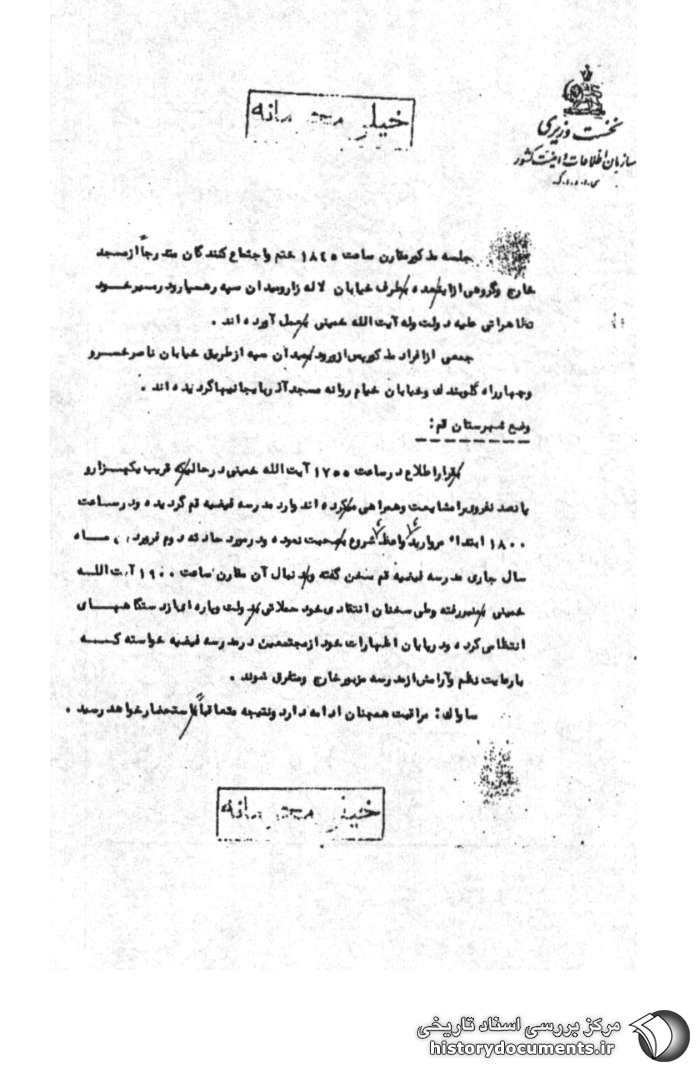 نخست وزیری
سازمان اطلاعات و امنیت کشور
س.ا.و.ا.ک
خیلی محرمانه
جلسه مذکور مقارن ساعت ۱۸۴۵ ختم و اجتماع کنندگان متدرجاً از مسجد
خارج و گروهی از اینعده بطرف خیابان لاله زار و میدان سپه رهسپار و در مسیر خود
تظاهراتی علیه دولت و له آیت الله خمینی بعمل آورده اند .
جمعی از افراد مذکور پس از ورود بمیدان سپه از طریق خیابان ناصر خسرو
و چهار راه گلوبندک و خیابان خیام روانه مسجد آذربایجانیها گردیده اند .
وضع شهرستان قم :
بقرار اطلاع در ساعت ۱۷۵۵ آیت الله خمینی در حالیکه قریب یکهزار و
پانصد نفر ویرا مشایعت و همراهی میکرده اند وارد مدرسه فیضیه قم گردیده و در ساعت
۱۸۰۰ ابتداء مروارید واعظ شروع بصحبت نموده و در مورد حادثه دوم فروردین ماه
سال جاری مدرسه فیضیه قم سخن گفته و بدنبال آن مقارن ساعت ۱۹۰۰ آیت الله
خمینی بمنبر رفته و طی سخنان انتقادی خود حملاتی بدولت و پاره ای از دستگاههای
انتظامی کرده و در پایان اظهارات خود از مجتمعین در مدرسه فیضیه خواسته که
با رعایت نظم و آرامش از مدرسه مزبور خارج و متفرق شوند .
ساواک : مراقبت همچنان ادامه دارد و نتیجه متعاقباً باستحضار خواهد رسید .
خیلی محرمانه
مرکز بررسی اسناد تاریخی
historydocuments.ir